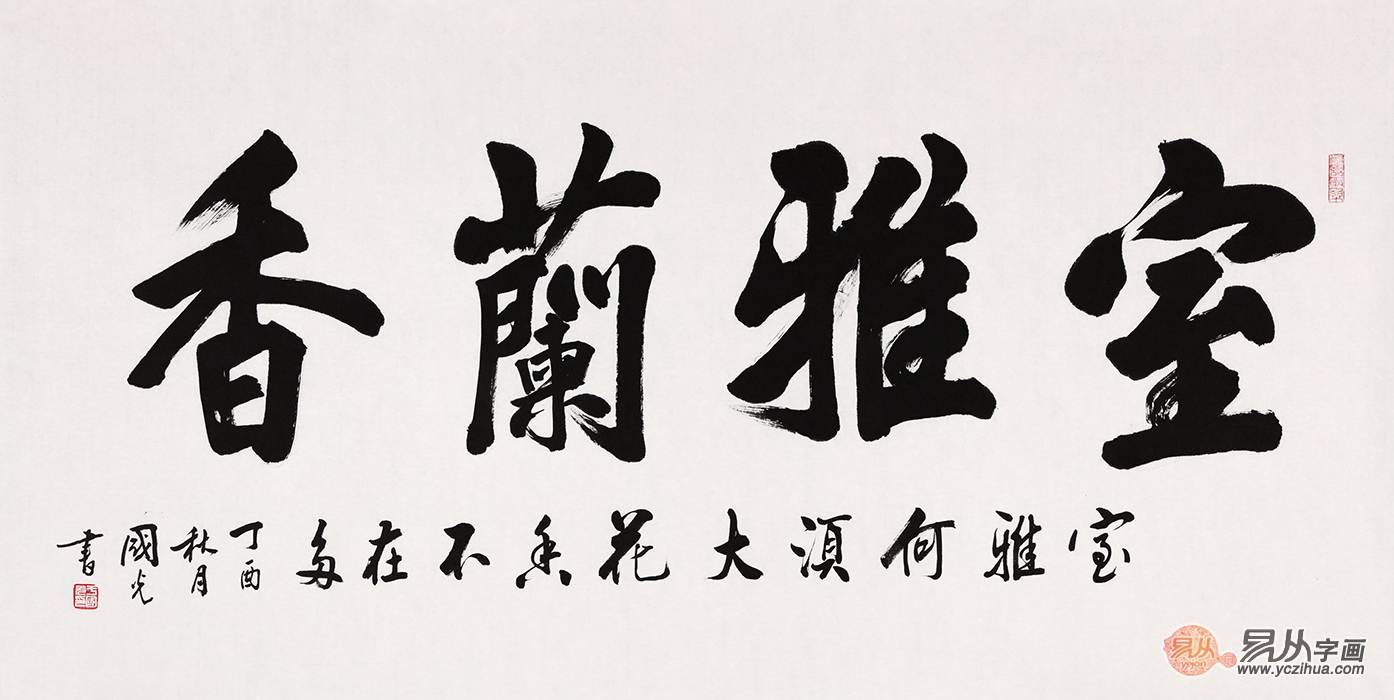 室雅蘭香
室雅何須大花香不在多
丁酉
秋月
國光
書
易从字画
www.yczihua.com
易从
yc